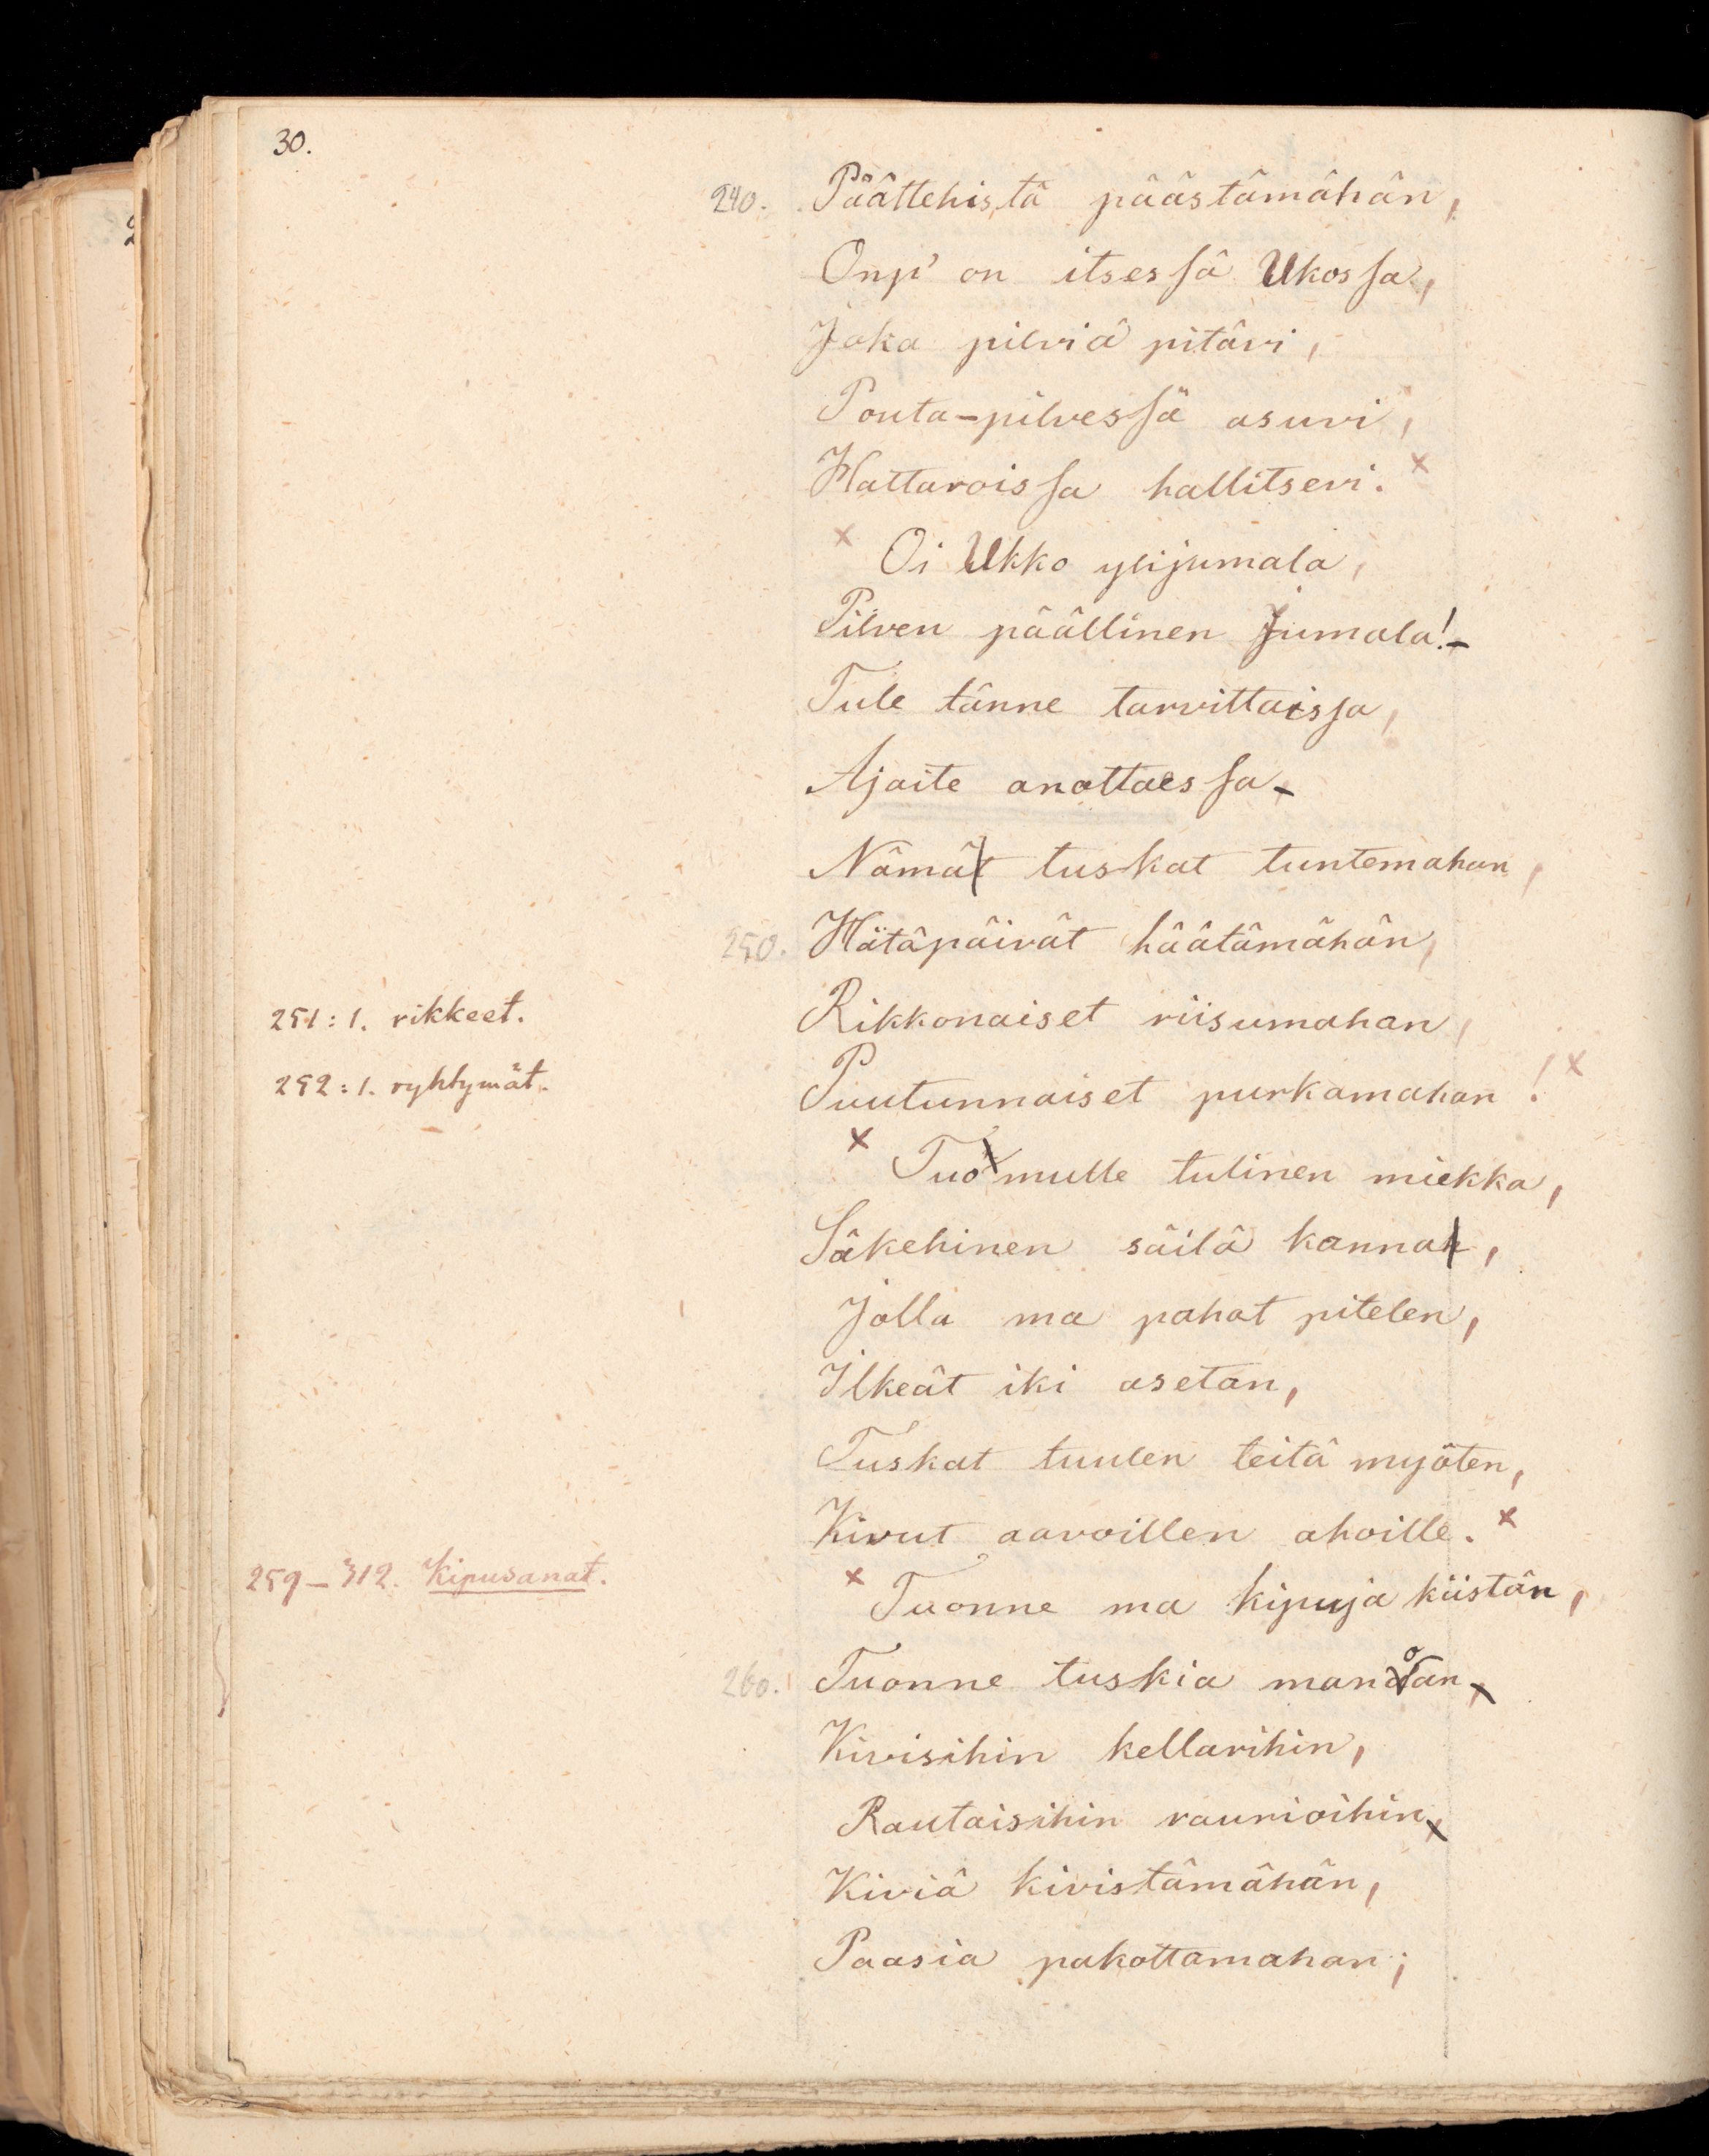 30.
240. Päättehistä päästämähän,
Onp' on itsessä Ukossa,
Joka pilviä pitävi,
Pouta-pilvessä asuvi,
Hattaroissa hallitsevi. x
x Oi Ukko ylijumala,
Pilven päällinen Jumala!-
Tule tänne tarvittaissa,
Ajaite anottaessa-
Nämät tuskat tuntemahan,
250. Hätäpäivät häätämähän,
251:1. rikkeet. Rikkonaiset riisumahan,
252:1. ryhtymät. Puutunnaiset purkamahan! x
x Tuo mulle tulinen miekka,
Säkehinen säilä kannah,
Jolla ma pahat pitelen,
Ilkeät iki asetan,
Tuskat tuulen teitä myöten,
Kivut aavoillen ahoille. x
259-312. Kipusanat. x Tuonne ma kipuja kiistän,
260. Tuonne tuskia manoan,
Kivisihin kellarihin,
Rautaisihin raunioihin,
Kiviä kivistämähän,
Paasia pakottamahan;